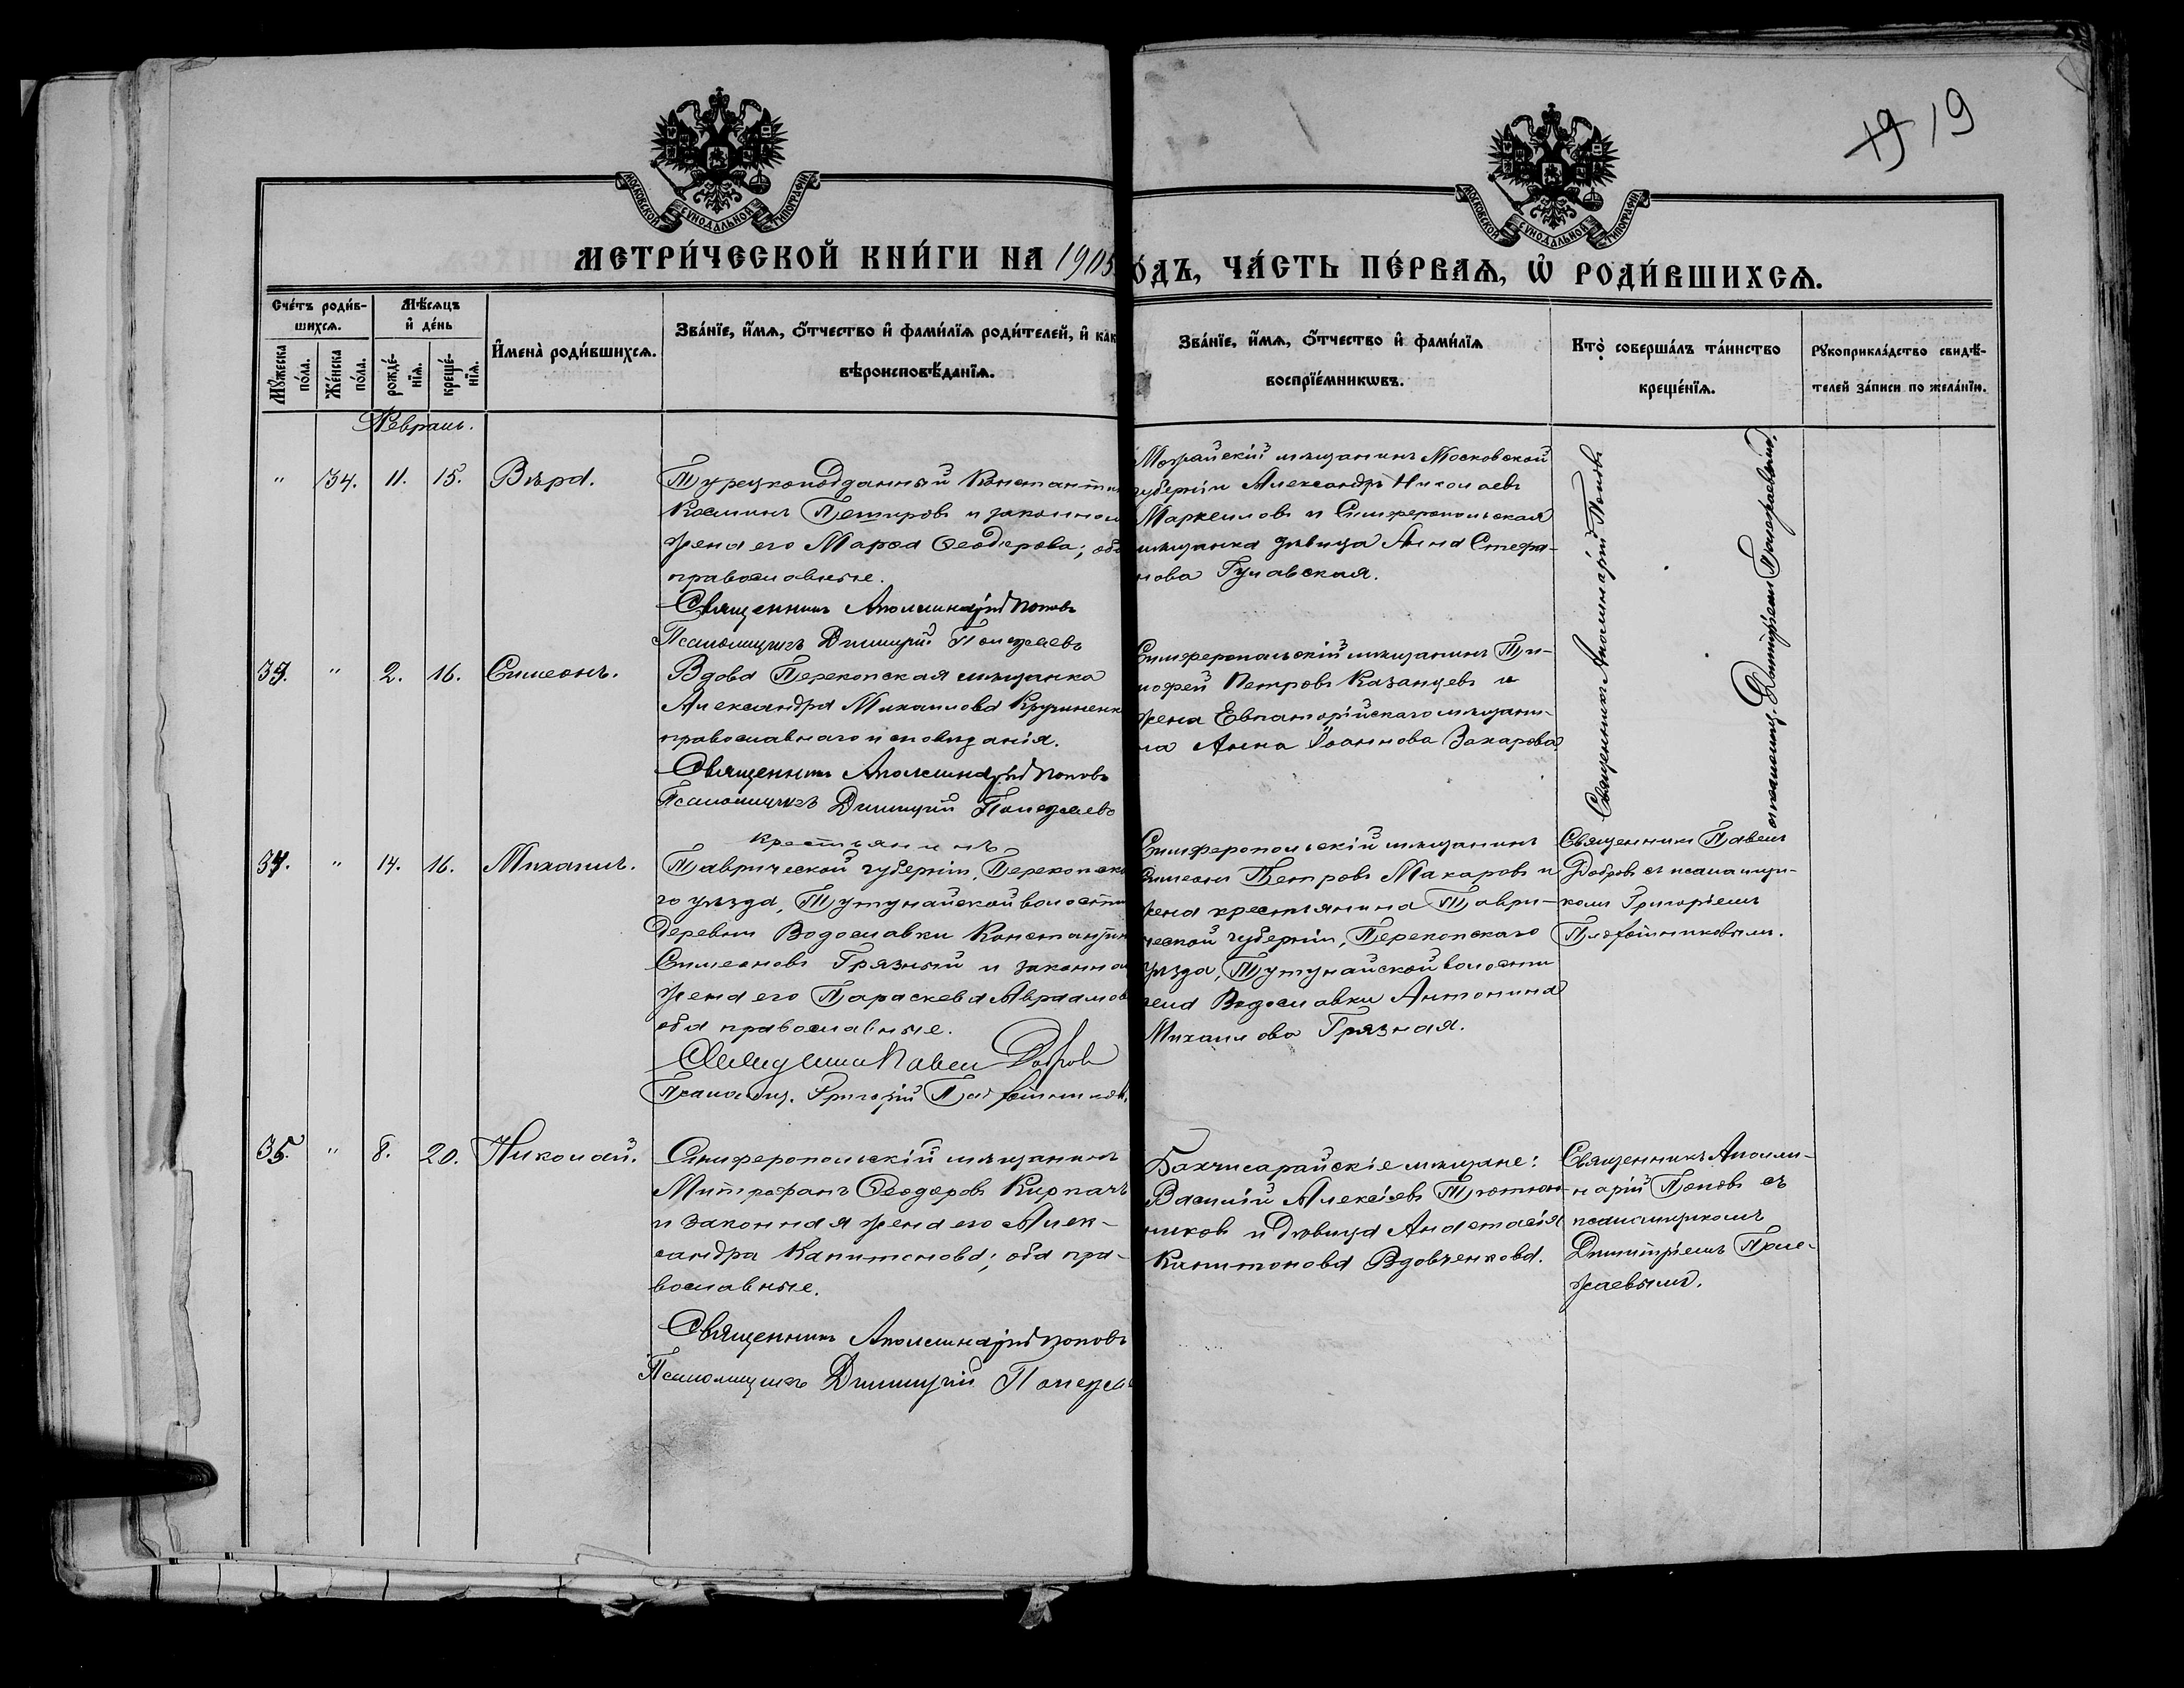 19 19
МОСКОВСКОЙ СѴНОДАЛЬНОЙ ТИПОГРАФІИ
МОСКОВСКОЙ СѴНОДАЛЬНОЙ ТИПОГРАФІИ
МЕТРИ́ЧЕСКОЙ КНИ́ГИ НА 1905
О́ДЪ, ЧА́СТЬ ПЕ́РВАѦ, Ѡ҆ РОДИ́ВШИХСѦ.
Сче́тъ роди́в-
шихсѧ.
Мꙋ́жеска по́ла.
Же́нска по́ла.
Мѣ́сѧцъ
и҆ де́нь
рожде́-
нїѧ.
креще́-
нїѧ.
И҆мена̀ роди́вшихсѧ.
Зва́нїе, и҆́мѧ, ѻ҆́тчество и҆ фами́лїѧ роди́телей, и҆ как
вѣроисповѣ́данїѧ.
Зва́нїе, и҆́мѧ, ѻ҆́тчество и҆ фами́лїѧ
воспрїе́мникѡвъ.
Кто̀ соверша́лъ та́инство
креще́нїѧ.
Рꙋкоприкла́дство свидѣ́-
телей за́писи по жела́нїю.
Февраль.
" 34. 11. 15. Вѣра.
Турецкоподданный Константин
Косминъ Петировъ и законная
жена его Марѳа Ѳеодорова; оба
православные.
Священникъ Аполлинарій Поповъ
Псаломщикъ Димитрій Полежаевъ
Можайскій мѣщанинъ Московской
губерніи Александръ Николаевъ
Маркелловъ и Симферопольская
мѣщанка дѣвица Анна Стефа-
нова Гулавская.
Священникъ Аполлинарій Поповъ
съ псаломщ. Димитріемъ Полежаевымъ.
33. " 2. 16. Симеонъ.
Вдова Перекопская мѣщанка
Александра Михаилова Кручиненк
православнаго исповѣданія.
Священникъ Аполлинарій Поповъ
Псаломщикъ Димитрій Полежаевъ
Симферопольскій мѣщанинъ Ти-
мофей Петровъ Казанцевъ и
жена Евпаторійскаго мѣщани-
на Анна Іоаннова Захарова
34. " 14. 16. Михаилъ.
крестьянинъ
Таврической губерніи, Перекопска
го уѣзда, Тутунайской волости
деревни Водославки Константин
Симеоновъ Грязный и законная
жена его Параскева Авраамов
оба православные.
Священникъ Павелъ Добровъ
Псаломщ. Григорій
Симферопольскій мѣщанинъ
Симеонъ Петровъ Макаровъ и
жена крестьянина Таври-
ческой губерніи, Перекопскаго
уѣзда, Тутунайской волости
села Водославки Антонина
Михаилова Грязная.
Священникъ Павелъ
Добровъ съ псаломщи-
комъ Григоріемъ
35. " 8. 20. Николай.
Симферопольскій мѣщанинъ
Митрофанъ Ѳеодоровъ Кирпачъ
и законная жена его Алек-
сандра Капитонова; оба пра-
вославные.
Священникъ Аполлинарій Поповъ
Псаломщикъ Димитрій Полежае
Бахчисарайскіе мѣщане:
Василій Алексіевъ Тютюн-
никовъ и дѣвица Анастасія
Капитонова Вдовченкова.
Священникъ Аполли-
нарій Поповъ съ
псаломщикомъ
Димитріемъ Поле-
жаевымъ.